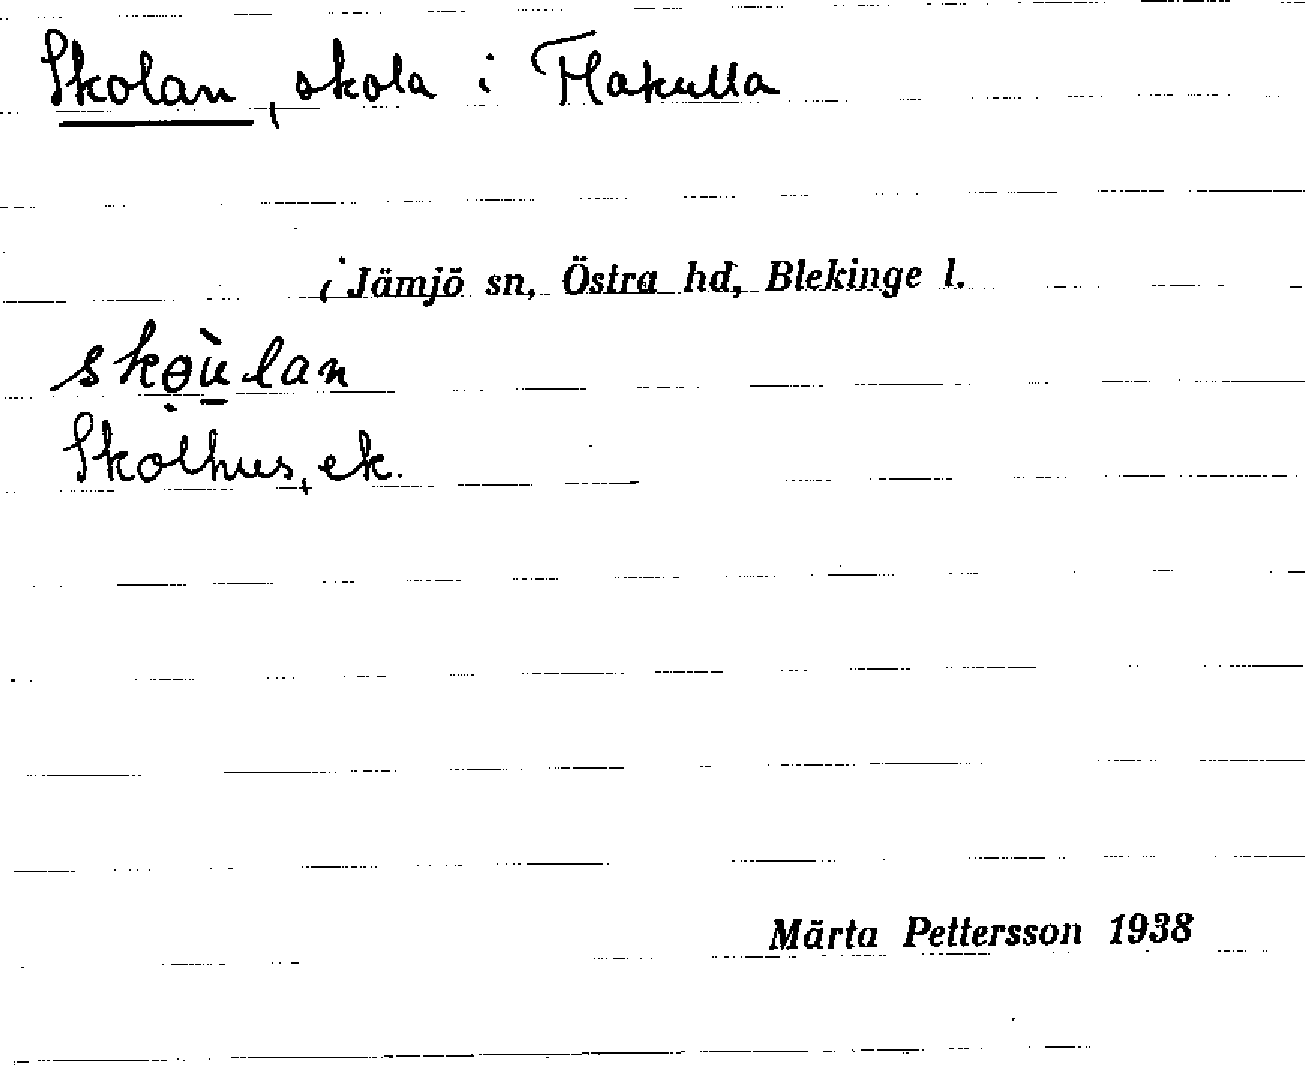 Skolan, skola i Flakulla
i Jämjö sn, Östra hd, Blekinge l.
skɵ̣ù̲lan
Skolhus, ek.
Märta Pettersson 1938